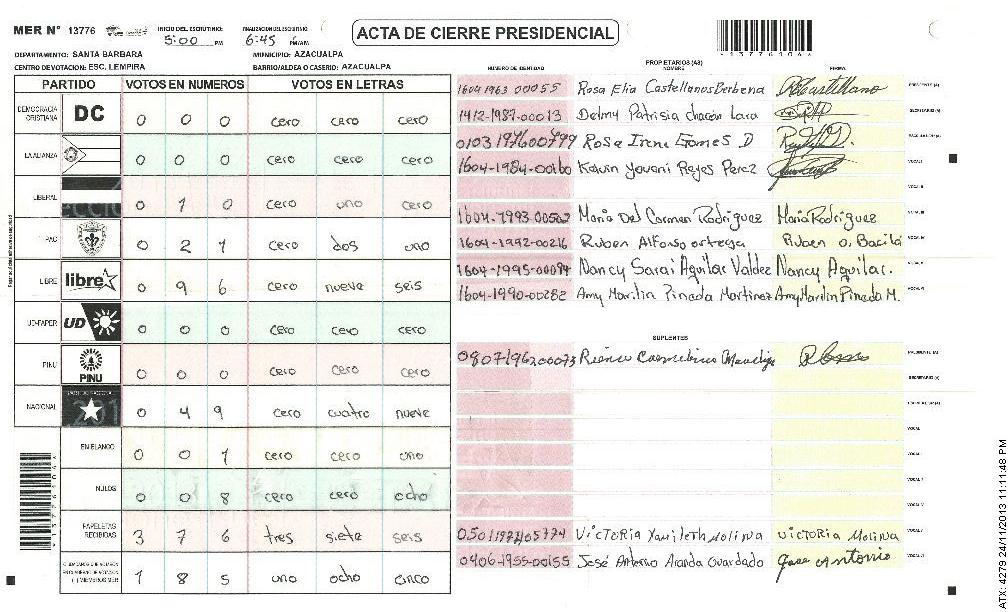 MER N° 13776 INICIO DEL ESCRUTINIO: 5:00 PM FINALIZACION DEL ESCRUTINIO: 6:45 PM/AM ACTA DE CIERRE PRESIDENCIAL *13776106*
DEPARTAMENTO: SANTA BARBARA MUNICIPIO: AZACUALPA
CENTRO DE VOTACION: ESC. LEMPIRA BARRIO/ALDEA O CASERIO: AZACUALPA
PARTIDO VOTOS EN NUMEROS VOTOS EN LETRAS
DEMOCRACIA CRISTIANA DC 0 0 0 cero cero cero
LA ALIANZA 0 0 0 cero cero cero
LIBERAL 0 1 0 cero uno cero
PAC 0 2 1 cero dos uno
LIBRE libre 0 9 6 cero nueve seis
UD-FAPER UD 0 0 0 cero cero cero
PINU PINU 0 0 0 cero cero cero
NACIONAL 0 4 9 cero cuatro nueve
EN BLANCO 0 0 1 cero cero uno
NULOS 0 0 8 cero cero ocho
PAPELETAS RECIBIDAS 3 7 6 tres siete seis
1 8 5 uno ocho cinco
PROPIETARIOS (AS)
NUMERO DE IDENTIDAD NOMBRE FIRMA
1604 1963 00055 Rosa Elia Castellanos Berbena PRESIDENTE (A)
1412-1987-00013 Delmy Patrisia chacon Lara SECRETARIO (A)
0103 197600799 Rosa Irene Gomes D ESCRUTADOR (A)
1604-1984-00160 Kelvin Yovani Reyes Perez VOCAL I
VOCAL II
1604-1993-00502 Maria Del Carmen Rodriguez Maria Rodriguez VOCAL III
1604-1992-00216 Ruben Alfonso ortega Ruben o. VOCAL IV
1604-1995-00094 Nancy Sarai Aguilar Valdez Nancy Aguilar. VOCAL V
1604-1990-00282 Amy Marilin Pineda Martinez Amy Marilin Pineda M. VOCAL VI
SUPLENTES
0807196200073 PRESIDENTE (A)
SECRETARIO (A)
ESCRUTADOR (A)
VOCAL I
VOCAL
VOCAL
VOCAL
VICTORIA Yamileth Molina VICTORIA Molina VOCAL
0406-1955-00155 José Antonio Aranda Guardado Jose Antonio VOCAL
ATX: 4279 24/11/2013 11:11:48 PM